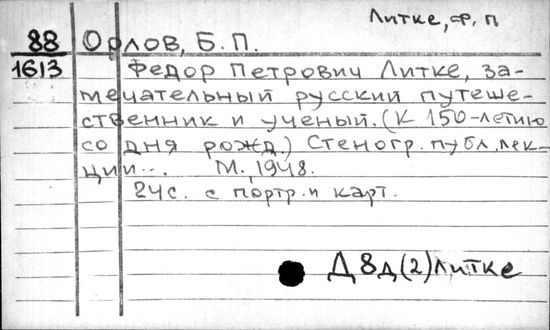 Литке, Ф. П
88 Орлов, Б. П.
1613 Федор Петрович Литке, за-
мечательный русский путеше-
ственник и ученый. (К 150-летию
со дня рожд.) Стеногр. публ. лек-
ции... М., 1948.
24с. с портр. и карт.
Д 8д(2)литке